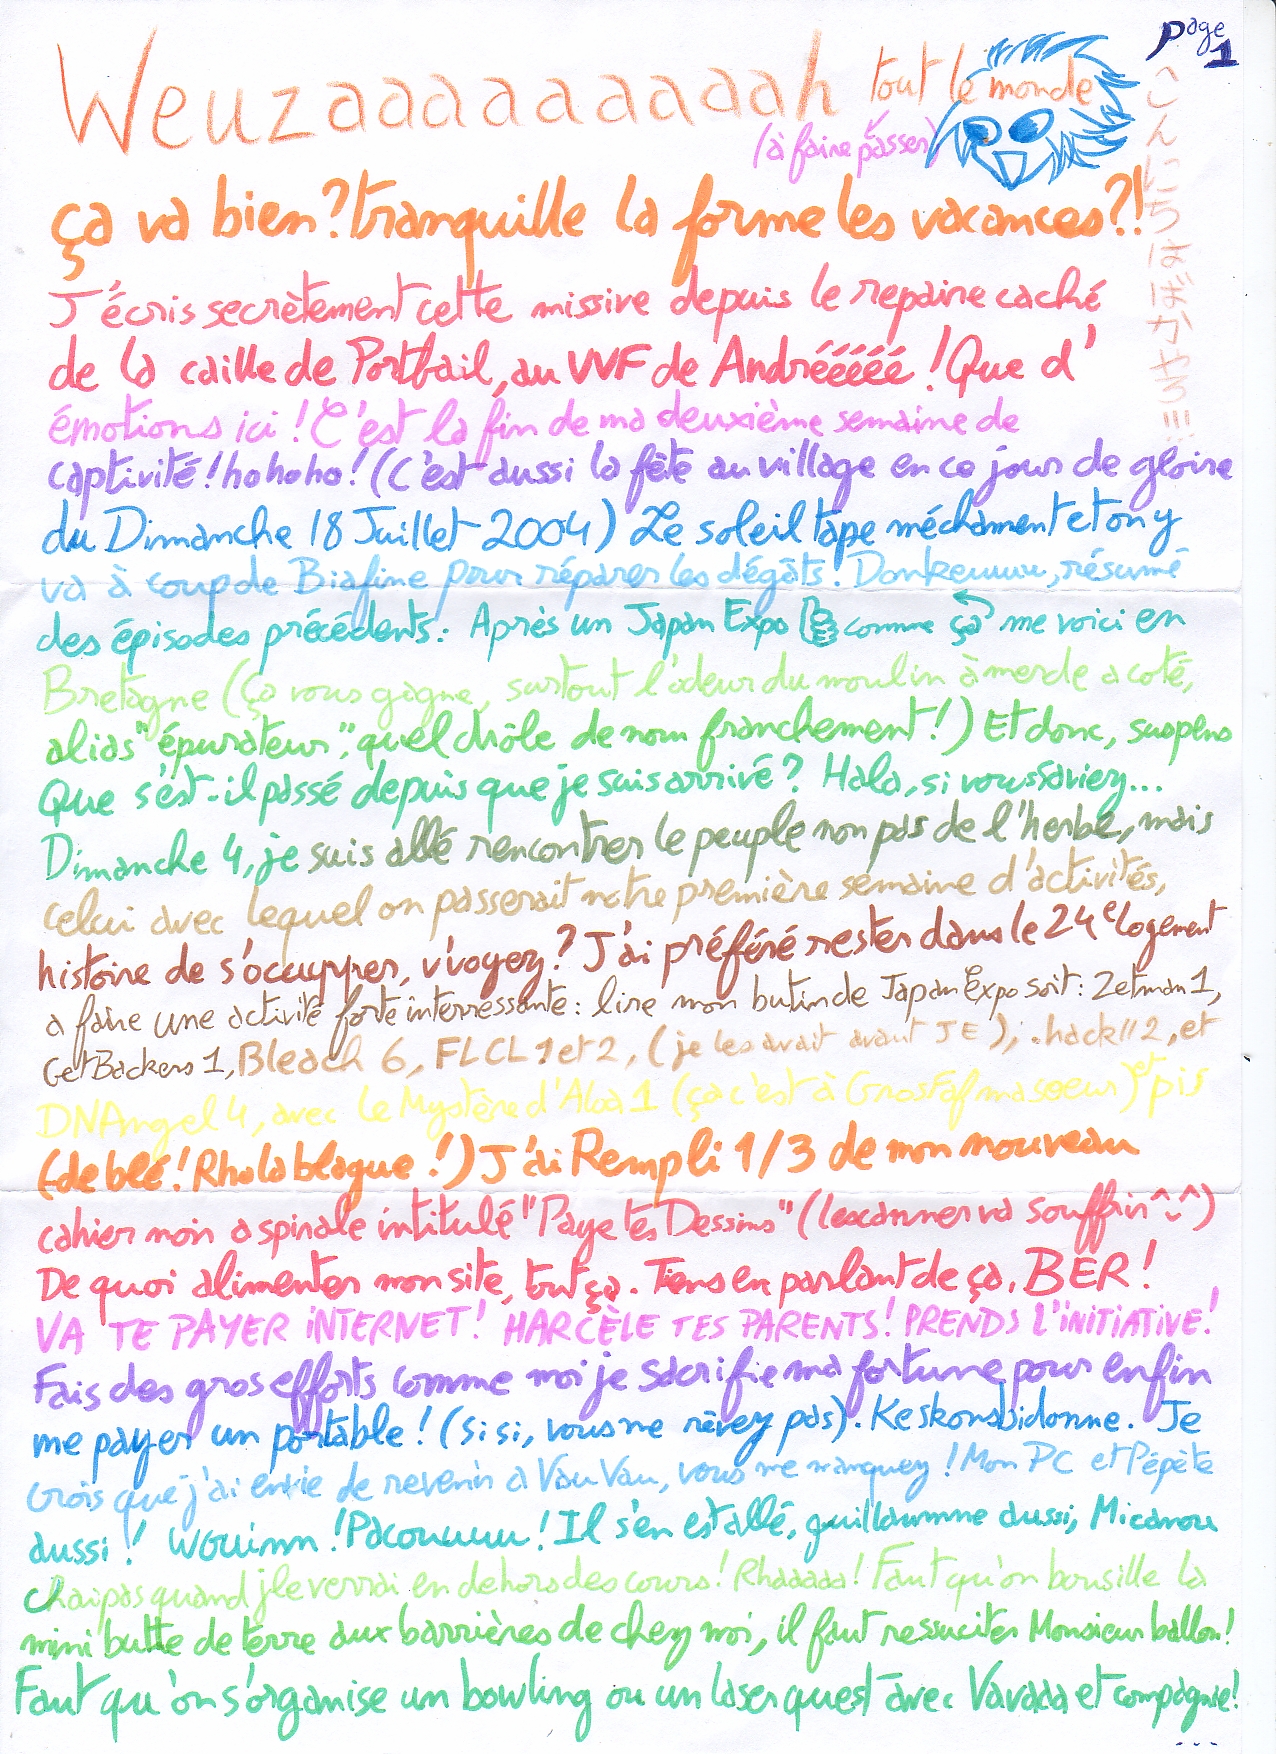 page 1
Weuzaaaaaaaaaah tout le monde
(à faire passer)
ça va bien? tranquille la forme les vacances?!
J'écris secrètement cette missive depuis le repaire caché
de la caille de Portbail, au VVF de Andréééééé ! Que d'
émotions ici ! C'est la fin de ma deuxième semaine de
captivité ! hohoho ! (C'est aussi la fête au village en ce jour de gloire
du Dimanche 18 Juillet 2004) Le soleil tape méchament et on y
va à coup de Biafine pour réparer les dégâts ! Donkeuuuu, résumé
des épisodes précédents : Après un Japan Expo comme ça me voici en
Bretagne (ça vous gagne, surtout l'odeur du moulin à merde a coté,
alias "épurateur", quel drôle de nom franchement !) Et donc, suspens
Que s'est-il passé depuis que je suis arrivé ? Hala, si vous saviez...
Dimanche 4, je suis allé rencontrer le peuple non pas de l'herbe, mais
celui avec lequel on passerait notre première semaine d'activités,
histoire de s'occupper, v'voyez ? J'ai préféré rester dans le 24e logement
a faire une activité forte interressante : lire mon butin de Japan Expo soit : Zetman 1,
GetBackers 1, Bleach 6, FLCL 1 et 2, (je les avait avant JE), .hack// 2, et
DNAngel 4, avec le Mystère d'Aloa 1 (ça c'est à GrosFaf ma soeur) et pis
(de blé ! Rho la blague !) J'ai Rempli 1/3 de mon nouveau
cahier noir a spirale intitulé "Paye tes Dessins" (le scanner va souffrir ^_^)
De quoi alimenter mon site, tout ça. Tiens en parlant de ça, BER !
VA TE PAYER INTERNET ! HARCÈLE TES PARENTS ! PRENDS L'INITIATIVE !
Fais des gros efforts comme moi je sacrifie ma fortune pour enfin
me payer un portable ! (si si, vous ne rêvez pas). Keskonsbidonne. Je
Crois que j'ai envie de revenir a VauVau, vous me manquez ! Mon PC et Pépète
aussi ! Wouinn ! Pacouuuu ! Il s'en est allé, guillaumme aussi, Micanou
chaipas quand j'le verrai en dehors des cours ! Rhaaaaa ! Faut qu'on bousille la
mini butte de terre aux barrières de chez moi, il faut ressuciter Monsieur ballon !
Faut qu'on s'organise un bowling ou un laser quest avec Vavaaa et compagnie !
...
こんにちはみなさま!!!